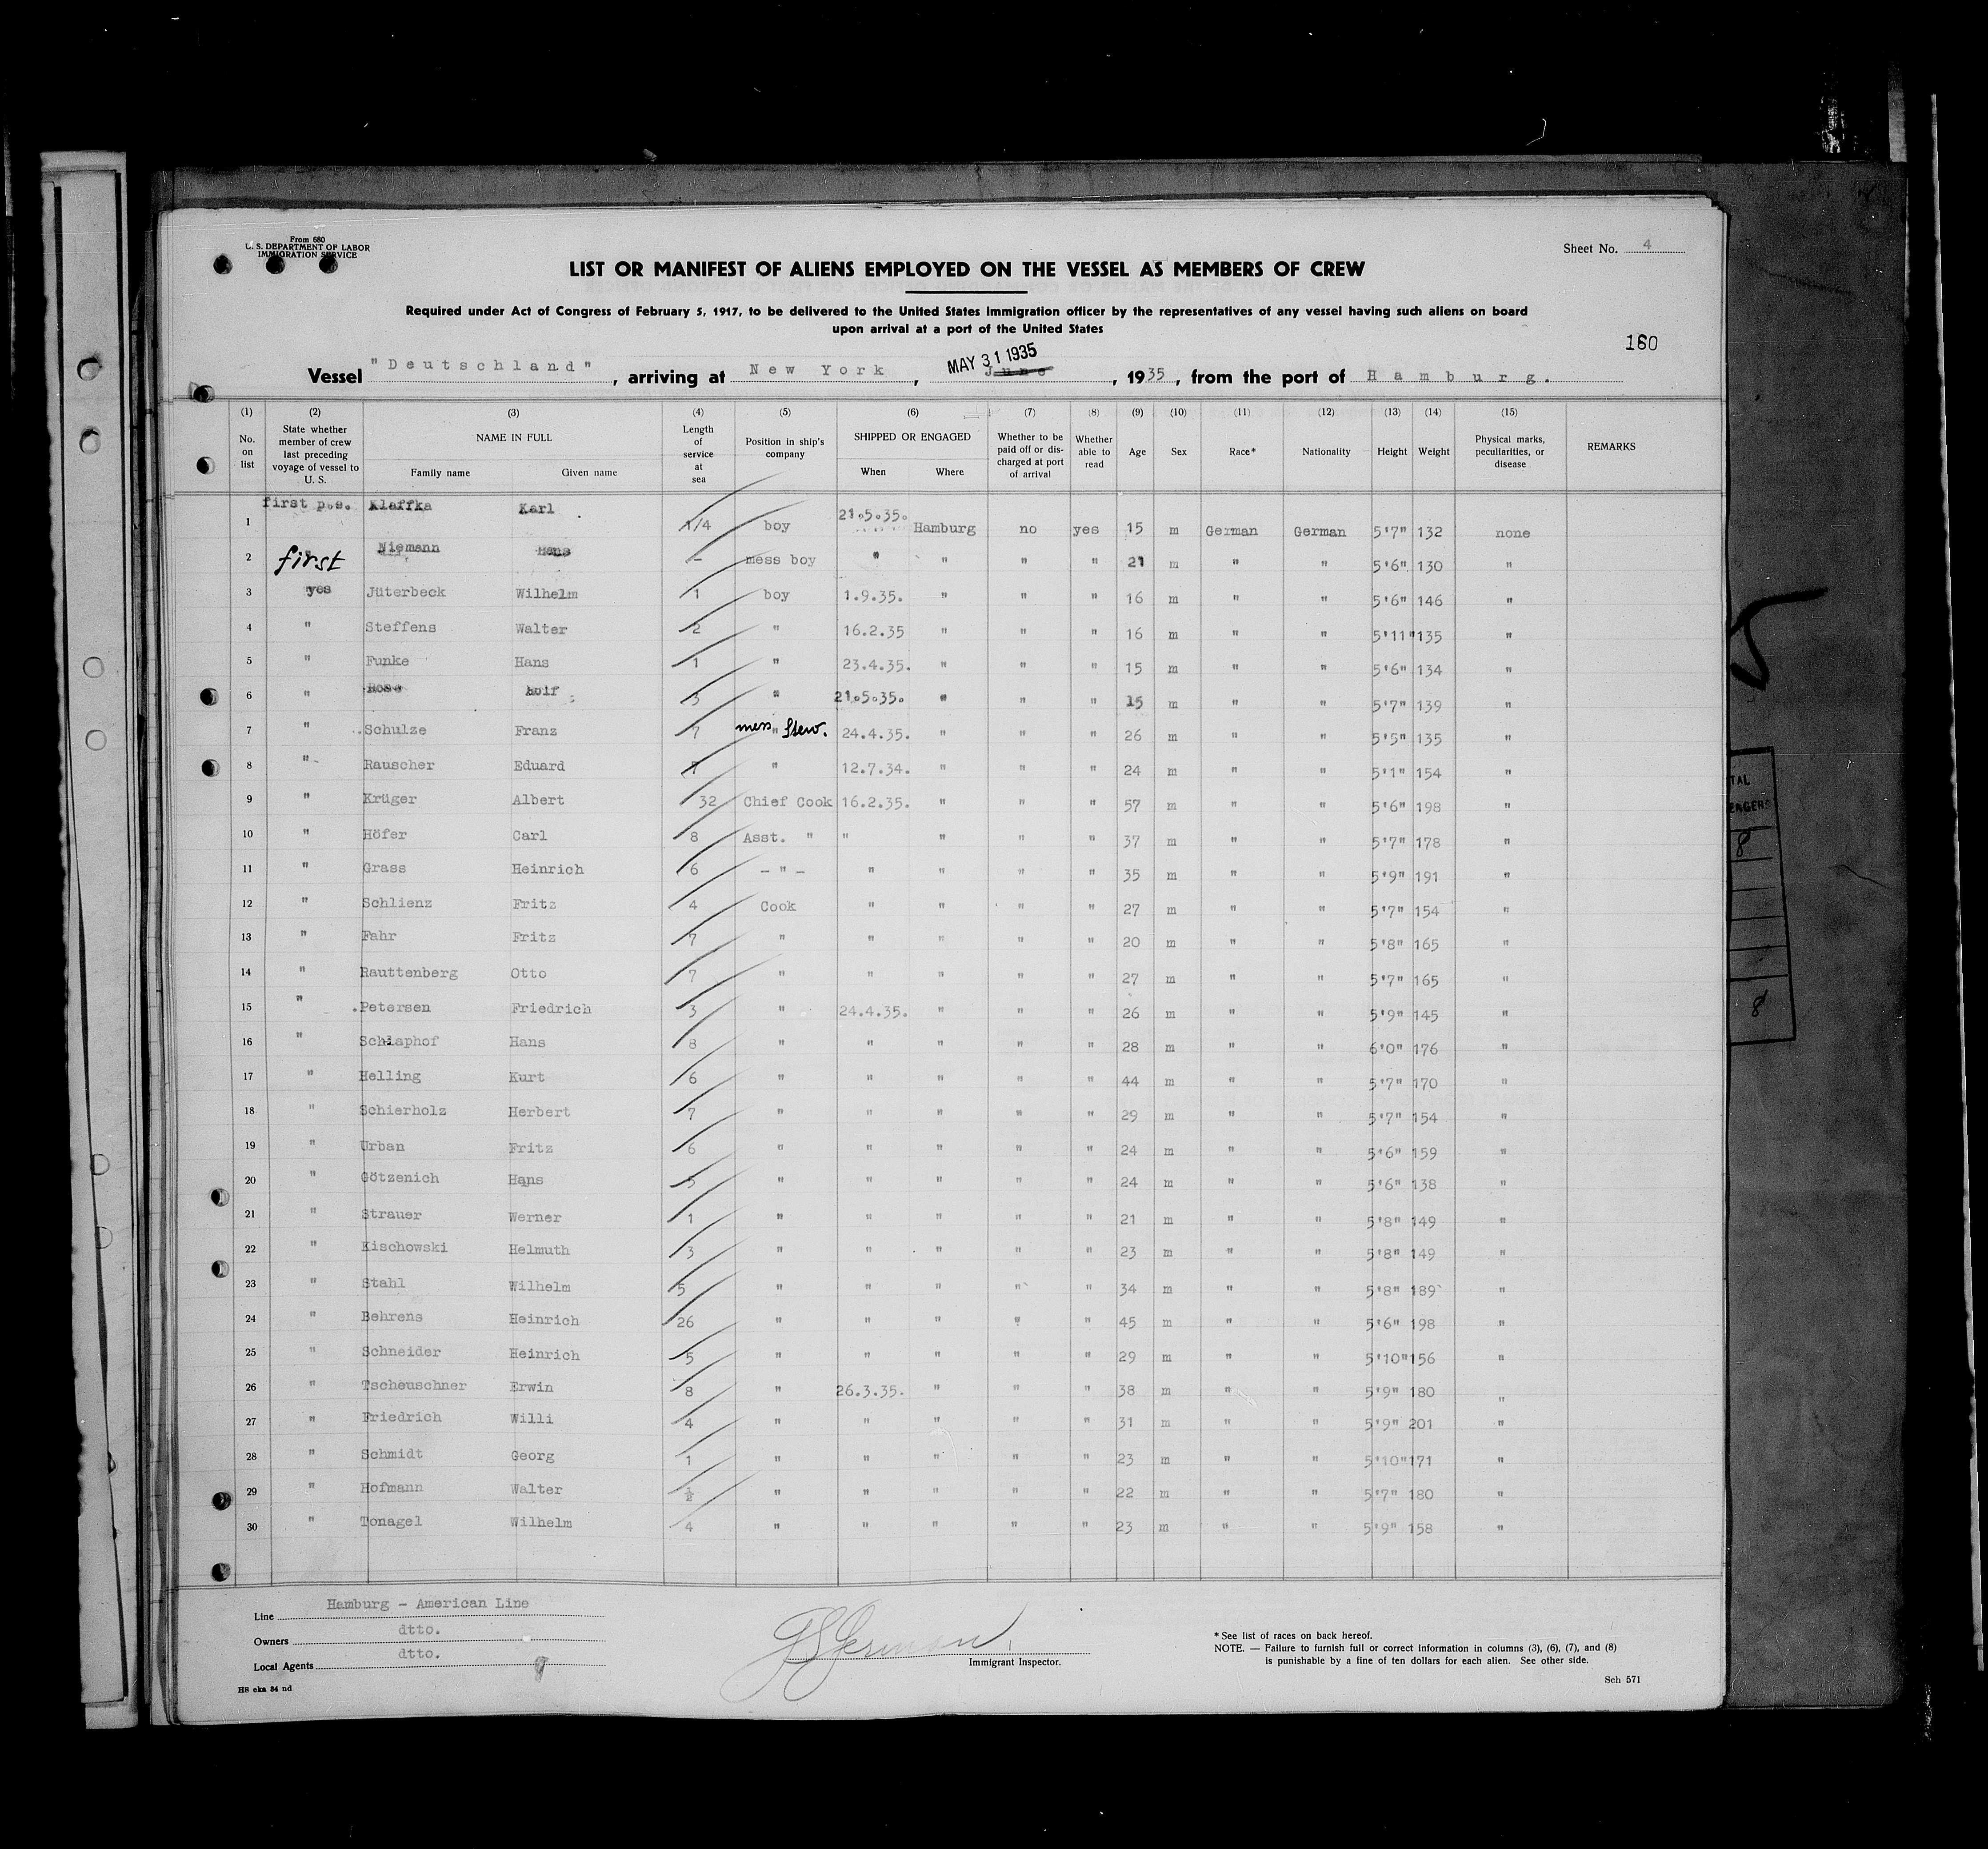 From 680
U. S. DEPARTMENT OF LABOR
IMMIGRATION SERVICE
Sheet No. 4
LIST OR MANIFEST OF ALIENS EMPLOYED ON THE VESSEL AS MEMBERS OF CREW
Required under Act of Congress of February 5, 1917, to be delivered to the United States Immigration officer by the representatives of any vessel having such aliens on board
upon arrival at a port of the United States
160
Vessel "Deutschland", arriving at New York, MAY 31 1935 June, 1935, from the port of Hamburg.
(1) (2) (3) (4) (5) (6) (7) (8) (9) (10) (11) (12) (13) (14) (15)
No. on list State whether member of crew last preceding voyage of vessel to U. S. NAME IN FULL Family name Given name Length of service at sea Position in ship's company SHIPPED OR ENGAGED When Where Whether to be paid off or discharged at port of arrival Whether able to read Age Sex Race* Nationality Height Weight Physical marks, peculiarities, or disease REMARKS
1 first p.s. Klaffka Karl 1/4 boy 21.5.35. Hamburg no yes 15 m German German 5'7" 132 none
2 first Niemann Hans – mess boy " " " " 21 m " " 5'6" 130 "
3 yes Jüterbeck Wilhelm 1 boy 1.9.35. " " " 16 m " " 5'6" 146 "
4 " Steffens Walter 2 " 16.2.35 " " " 16 m " " 5'11" 135 "
5 " Funke Hans 1 " 23.4.35. " " " 15 m " " 5'6" 134 "
6 " Rose Rolf 3 " 21.5.35. " " " 15 m " " 5'7" 139 "
7 " Schulze Franz 7 mess " Stew. 24.4.35. " " " 26 m " " 5'5" 135 "
8 " Rauscher Eduard 7 " 12.7.34. " " " 24 m " " 5'1" 154 "
9 " Krüger Albert 32 Chief Cook 16.2.35. " " " 57 m " " 5'6" 198 "
10 " Höfer Carl 8 Asst. " " " " " 37 m " " 5'7" 178 "
11 " Grass Heinrich 6 – " – " " " " 35 m " " 5'9" 191 "
12 " Schlienz Fritz 4 Cook " " " " 27 m " " 5'7" 154 "
13 " Fahr Fritz 7 " " " " " 20 m " " 5'8" 165 "
14 " Rauttenberg Otto 7 " " " " " 27 m " " 5'7" 165 "
15 " Petersen Friedrich 3 " 24.4.35. " " " 26 m " " 5'9" 145 "
16 " Schiaphof Hans 8 " " " " " 28 m " " 6'0" 176 "
17 " Helling Kurt 6 " " " " " 44 m " " 5'7" 170 "
18 " Schierholz Herbert 7 " " " " " 29 m " " 5'7" 154 "
19 " Urban Fritz 6 " " " " " 24 m " " 5'6" 159 "
20 " Götzenich Hans 5 " " " " " 24 m " " 5'6" 138 "
21 " Strauer Werner 1 " " " " " 21 m " " 5'8" 149 "
22 " Kischowski Helmuth 3 " " " " " 23 m " " 5'8" 149 "
23 " Stahl Wilhelm 5 " " " " " 34 m " " 5'8" 189 "
24 " Behrens Heinrich 26 " " " " " 45 m " " 5'6" 198 "
25 " Schneider Heinrich 5 " " " " " 29 m " " 5'10" 156 "
26 " Tscheuschner Erwin 8 " 26.3.35. " " " 38 m " " 5'9" 180 "
27 " Friedrich Willi 4 " " " " " 31 m " " 5'9" 201 "
28 " Schmidt Georg 1 " " " " " 23 m " " 5'10" 171 "
29 " Hofmann Walter ½ " " " " " 22 m " " 5'7" 180 "
30 " Tonagel Wilhelm 4 " " " " " 23 m " " 5'9" 158 "
Line Hamburg – American Line
Owners dtto.
Local Agents dtto.
HS eka 34 nd
Immigrant Inspector.
* See list of races on back hereof.
NOTE. — Failure to furnish full or correct information in columns (3), (6), (7), and (8)
is punishable by a fine of ten dollars for each alien. See other side.
Sch 571
8
8